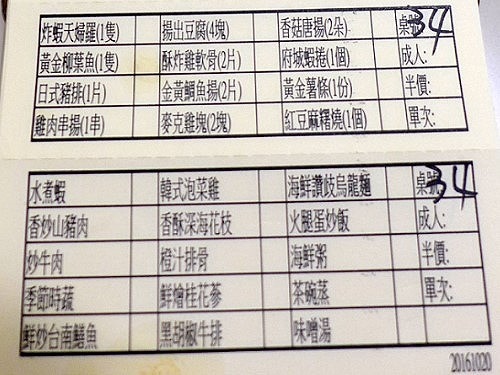 炸蝦天婦羅(1隻) 揚出豆腐(4塊) 香菇唐揚(2朵) 桌號 34
黃金柳葉魚(1隻) 酥炸雞軟骨(2片) 府城蝦捲(1個) 成人:
日式豬排(1片) 金黃鯛魚揚(2片) 黃金薯條(1份) 半價:
雞肉串揚(1串) 麥克雞塊(2塊) 紅豆麻糬燒(1個) 單次:
水煮蝦 韓式泡菜雞 海鮮讚岐烏龍麵 桌號 34
香炒山豬肉 香酥深海花枝 火腿蛋炒飯 成人:
炒牛肉 橙汁排骨 海鮮粥 半價:
季節時蔬 鮮燴桂花蔘 茶碗蒸 單次:
鮮炒台南鱔魚 黑胡椒牛排 味噌湯
20161020